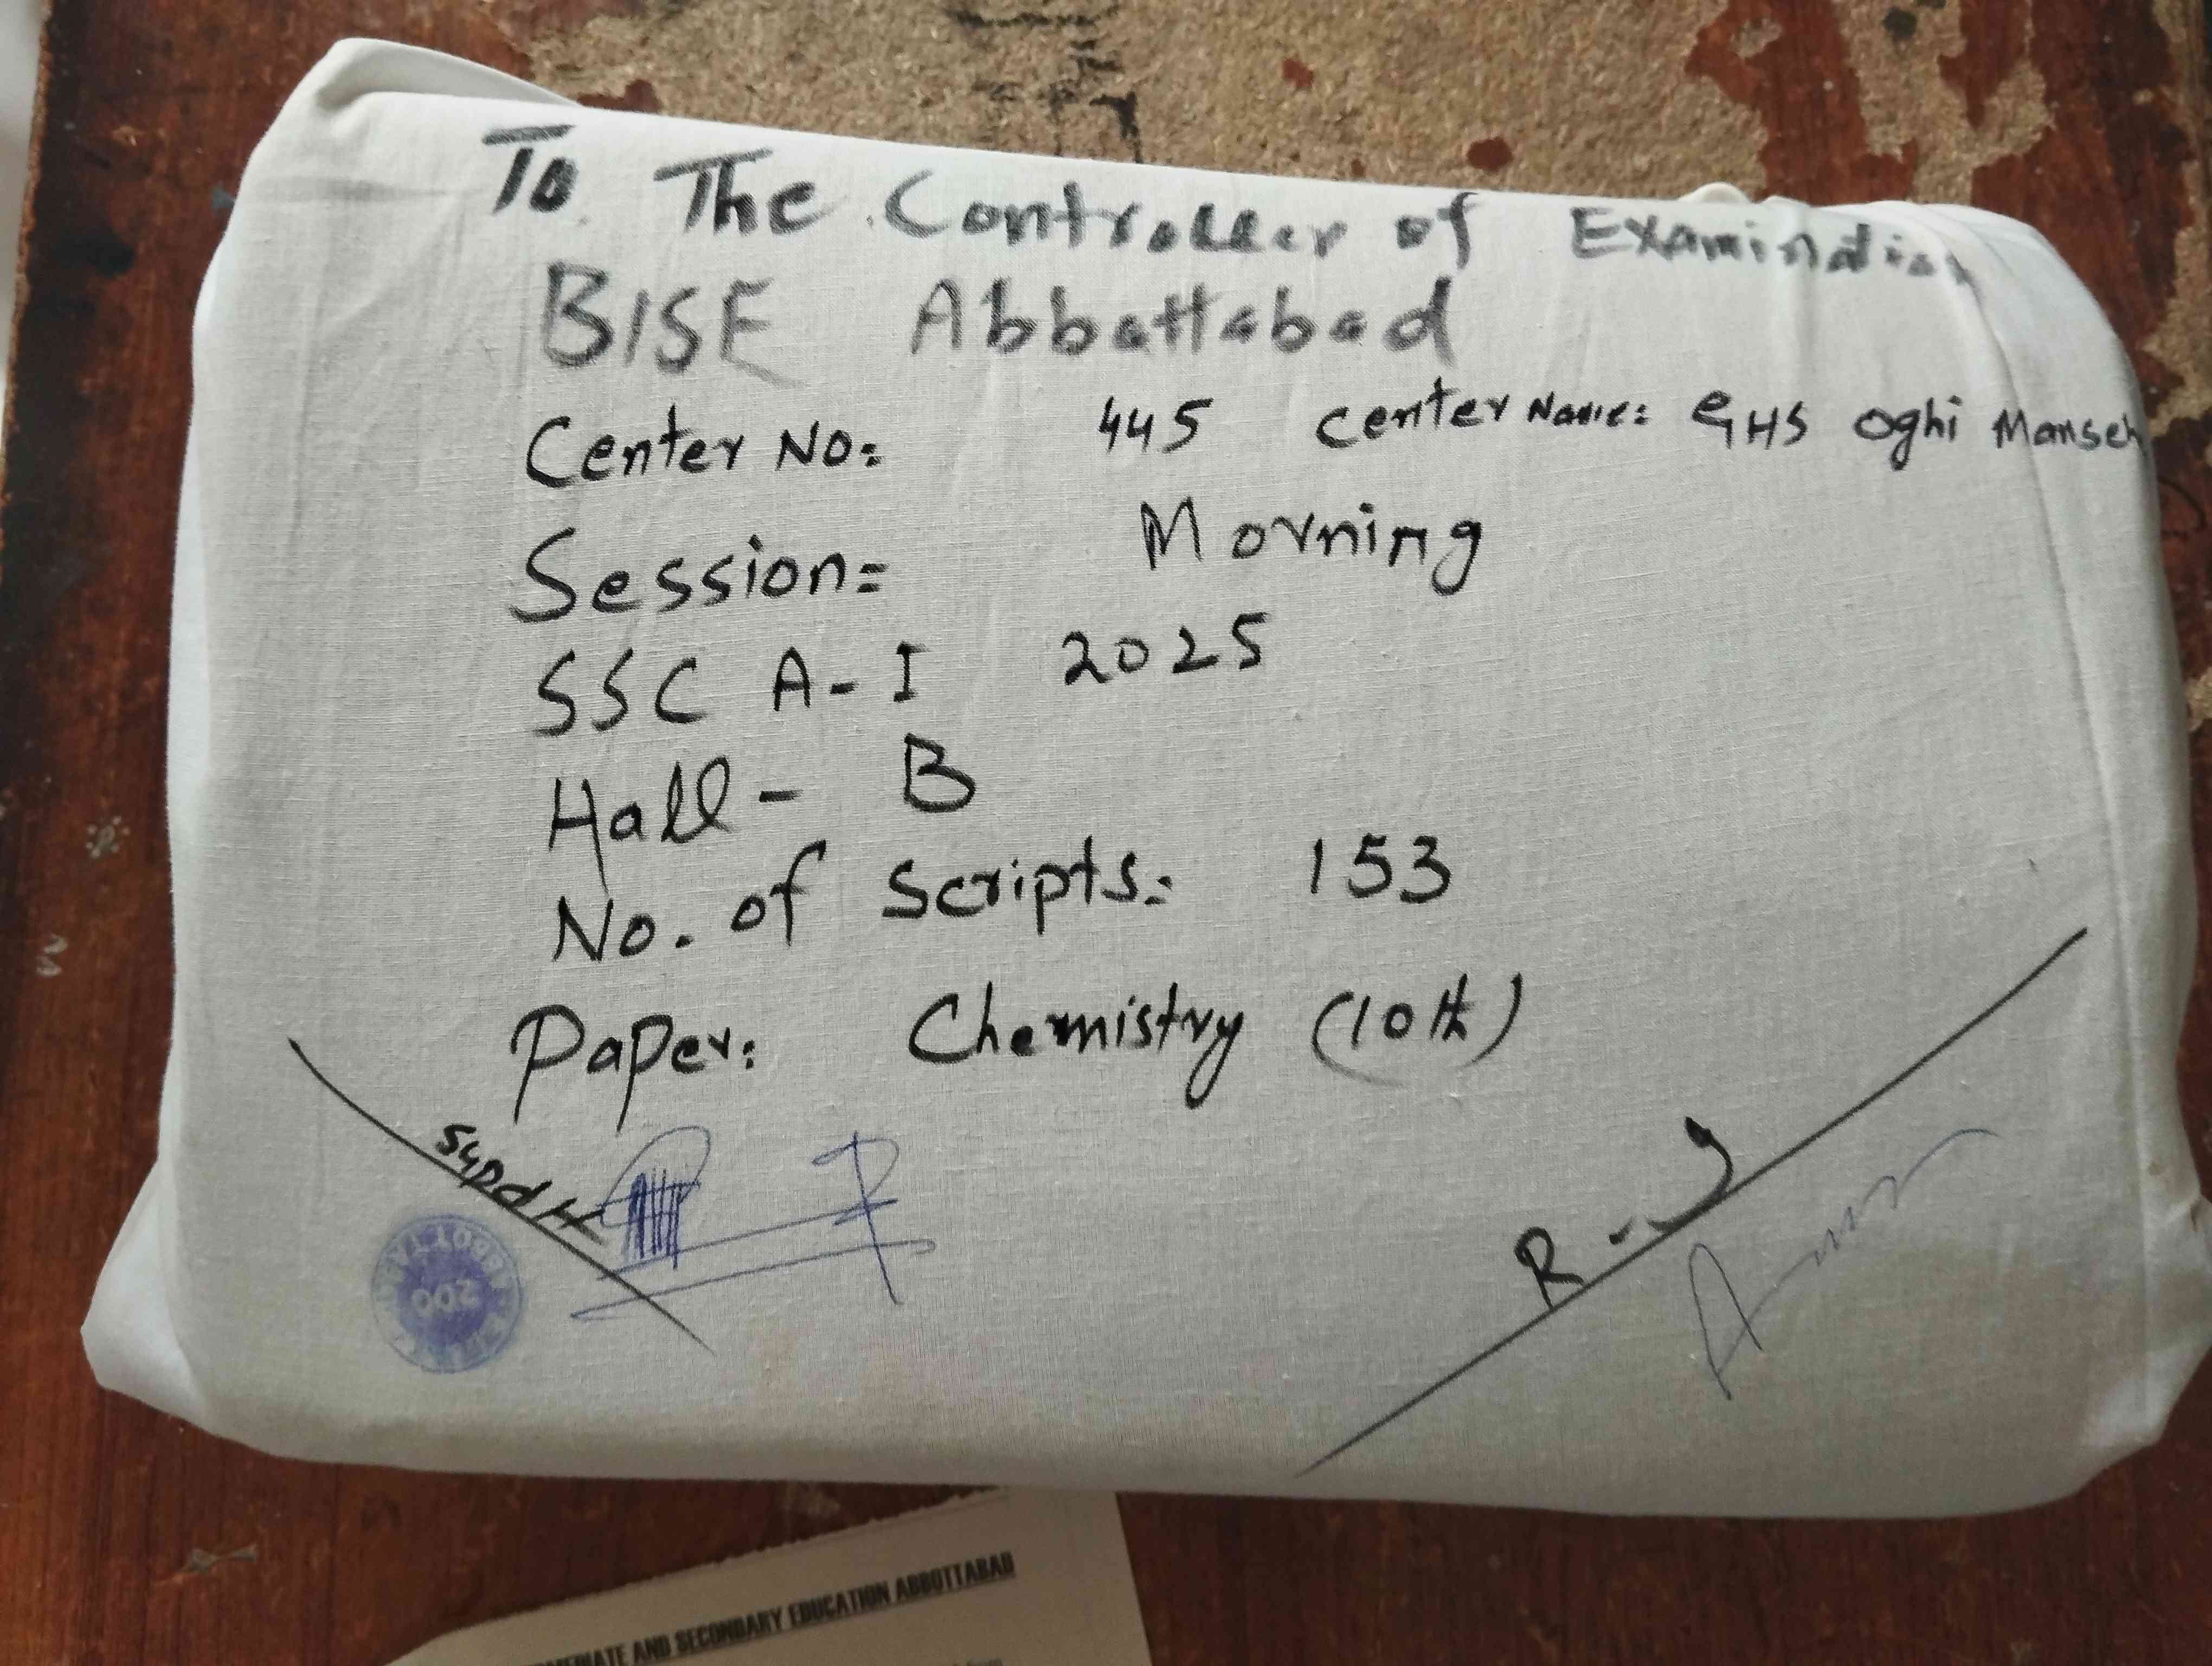 To The Controller of Examination
BISE Abbottabad
Center No: 445 center Name: GHS Oghi Manseh
Session: Morning
SSC A-I 2025
Hall - B
No. of Scripts: 153
Paper: Chemistry (10th)
Supdtt
R-I
INTERMEDIATE AND SECONDARY EDUCATION ABBOTTABAD